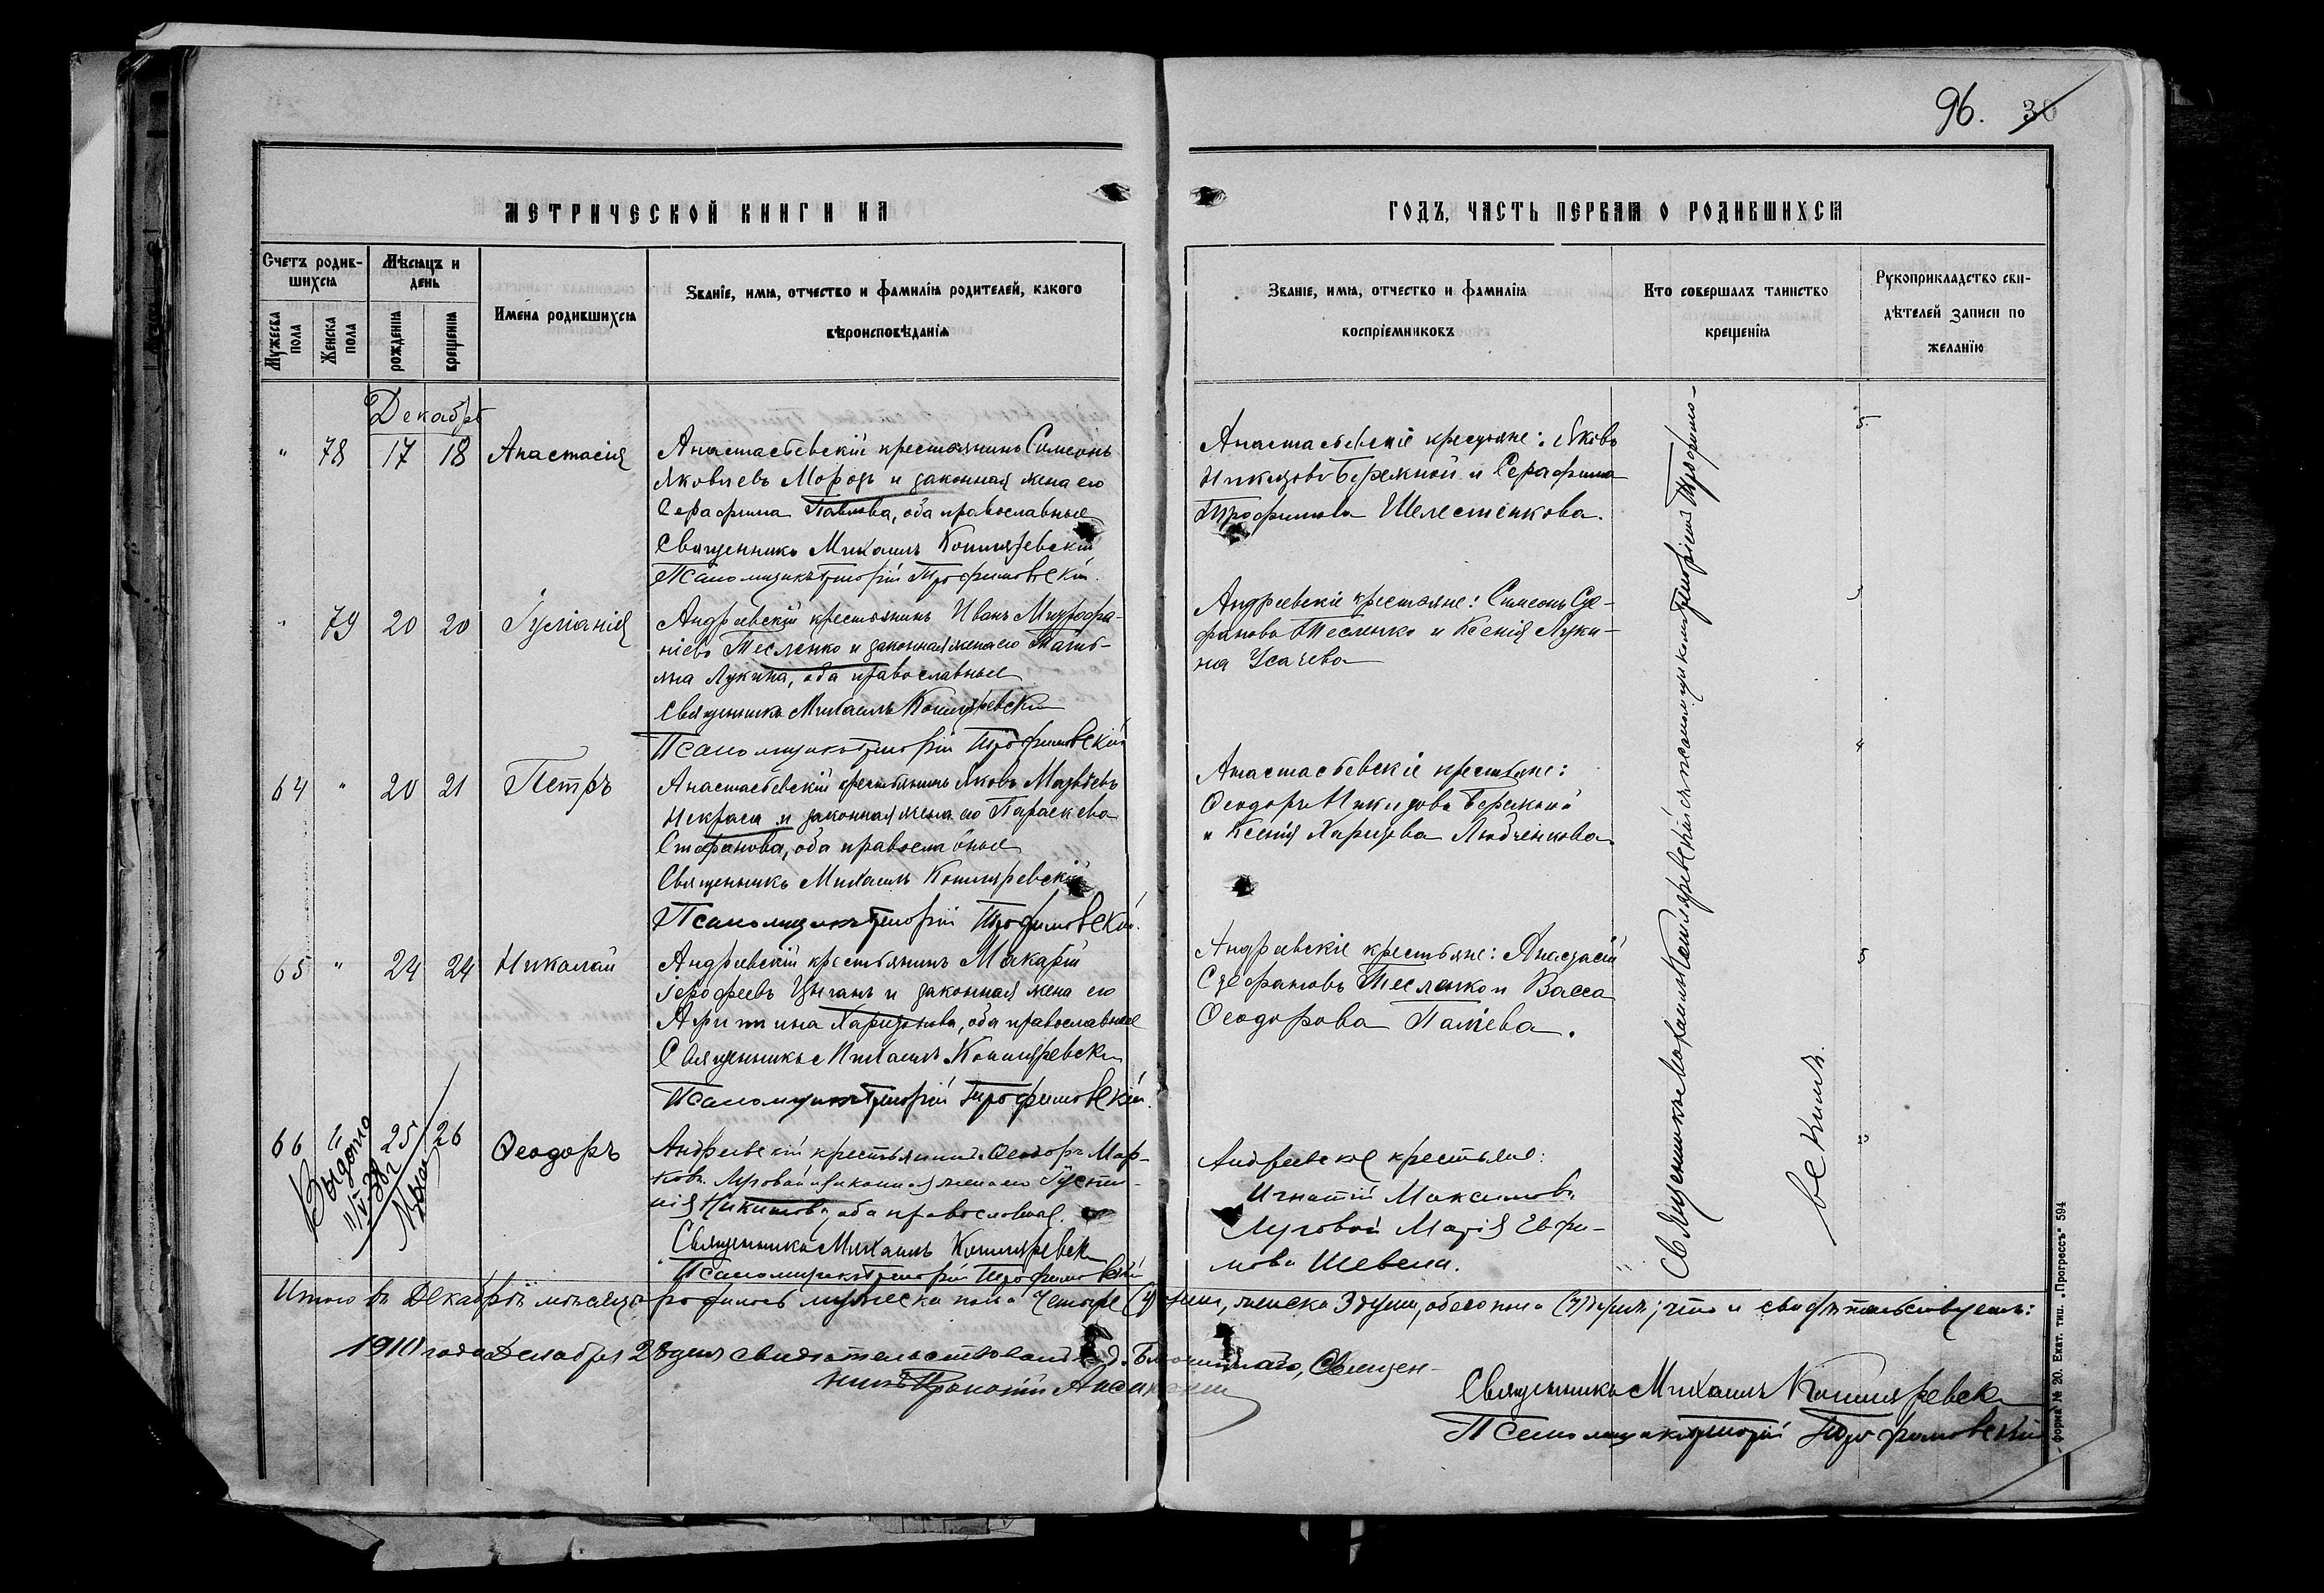 96. 36
МЕТРИЧЕСКОЙ КНИГИ НА
ГОДЪ, ЧАСТЬ ПЕРВАЯ О РОДИВШИХСЯ
Счетъ родив-
шихся
Мѣсяцъ и
день
Мужеска
пола
Женска
пола
рожденія
крещенія
Имена родившихся
Званіе, имя, отчество и фамилія родителей, какого
вѣроисповѣданія
Званіе, имя, отчество и фамилія
воспріемниковъ
Кто совершалъ таинство
крещенія
Рукоприкладство сви-
дѣтелей записи по
желанію
Декабрь
" 78 17 18 Анастасія
Анастасьевскій крестьянинъ Симеонъ
Яковлевъ Морозъ и законная жена его
Серафима Павлова, оба православные
Священникъ Михаилъ Котляревскій
Псаломщикъ Григорій Трофимовскій.
Анастасьевскіе крестьяне: Яковъ
Никитовъ Бережной и Серафима
Трофимова Шелестенкова.
" 79 20 20 Іуліанія
Андреевскій крестьянинъ Иванъ Митрофа-
ніевъ Тесленко и законная жена его Тать-
яна Лукина, оба православные
Священникъ Михаилъ Котляревскій
Псаломщикъ Григорій Трофимовскій
Андреевскіе крестьяне: Симеонъ Сте-
фановъ Тесленко и Ксенія Луки-
на Усачева
64 " 20 21 Петръ
Анастасьевскій крестьянинъ Яковъ Матвѣевъ
Некраса и законная жена его Параскева
Стефанова, оба православные
Священникъ Михаилъ Котляревскій
Псаломщикъ Григорій Трофимовскій.
Анастасьевскіе крестьяне:
Ѳеодоръ Никитовъ Бережной
и Ксенія Харитова Любченкова.
65 " 24 24 Николай
Андреевскій крестьянинъ Макарій
Іерофеевъ Цыганъ и законная жена его
Харитонова, оба православные
Священникъ Михаилъ Котляревскій
Псаломщикъ Григорій Трофимовскій.
Андреевскіе крестьяне: Анастасій
Стефановъ Тесленко и Васса
Ѳеодорова
66 " 25 26 Ѳеодоръ
Выдано
Андреевскій крестьянинъ Ѳеодоръ Мар-
ковъ Луговой и законная жена его Іусти-
нія Никитова, оба православные.
Священникъ Михаилъ Котляревскій
Псаломщикъ Григорій Трофимовскій
Андреевские крестьяне:
Игнатій Максимовъ
Луговой Марія Ефи-
мова Шевела.
Священникъ Михаилъ Котляревскій съ псаломщикомъ Григоріемъ Трофимо-
вскимъ.
Итого въ Декабрѣ мѣсяцѣ родилось мужеска пола четыре (4) души, женска 3 души, обоего пола (7) душъ; что и свидѣтельствуемъ:
1910 года Декабря 28 дня свидѣтельствовалъ Благочиннаго, Священ-
никъ Прокопій
Священникъ Михаилъ Котляревскій
Псаломщикъ Григорій Трофимовскій
форма № 20. Екат. тип. „Прогрессъ" 594